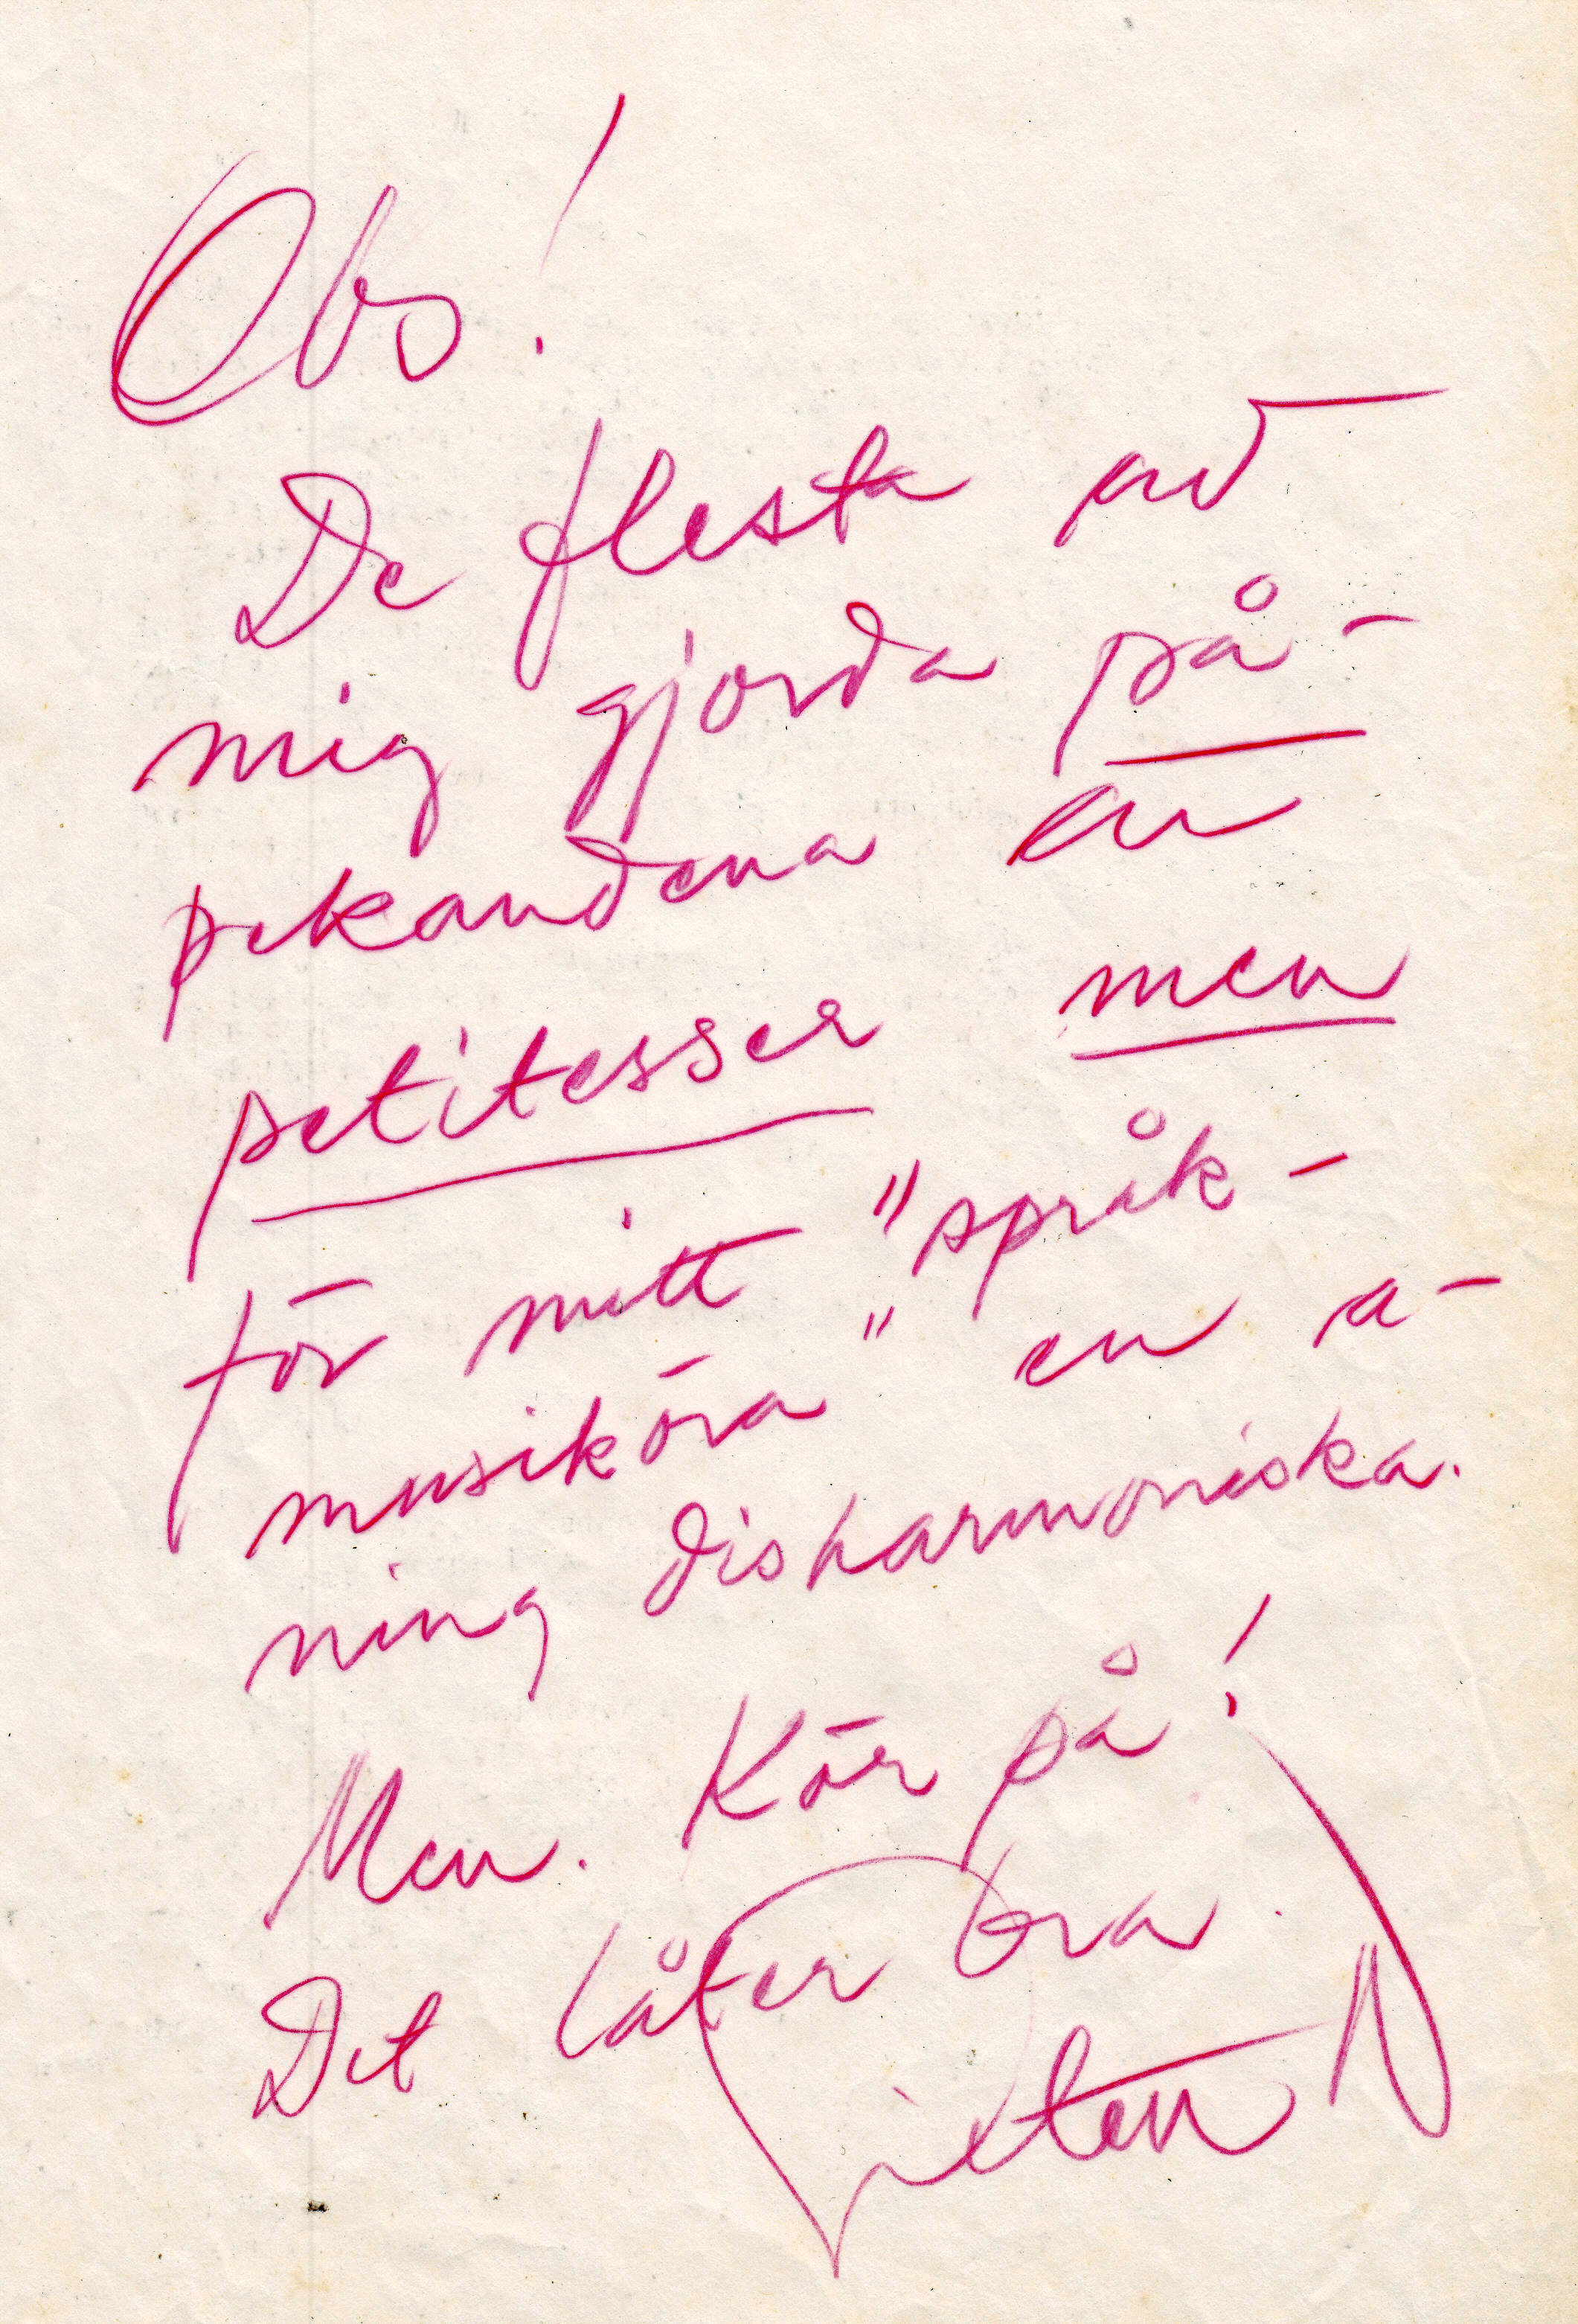 Obs!
De flesta av
mig gjorda på-
pekandena är
petitesser men
för mitt "språk-
musiköra" en a-
ning disharmoniska.
Men. Kör på!
Det låter bra.